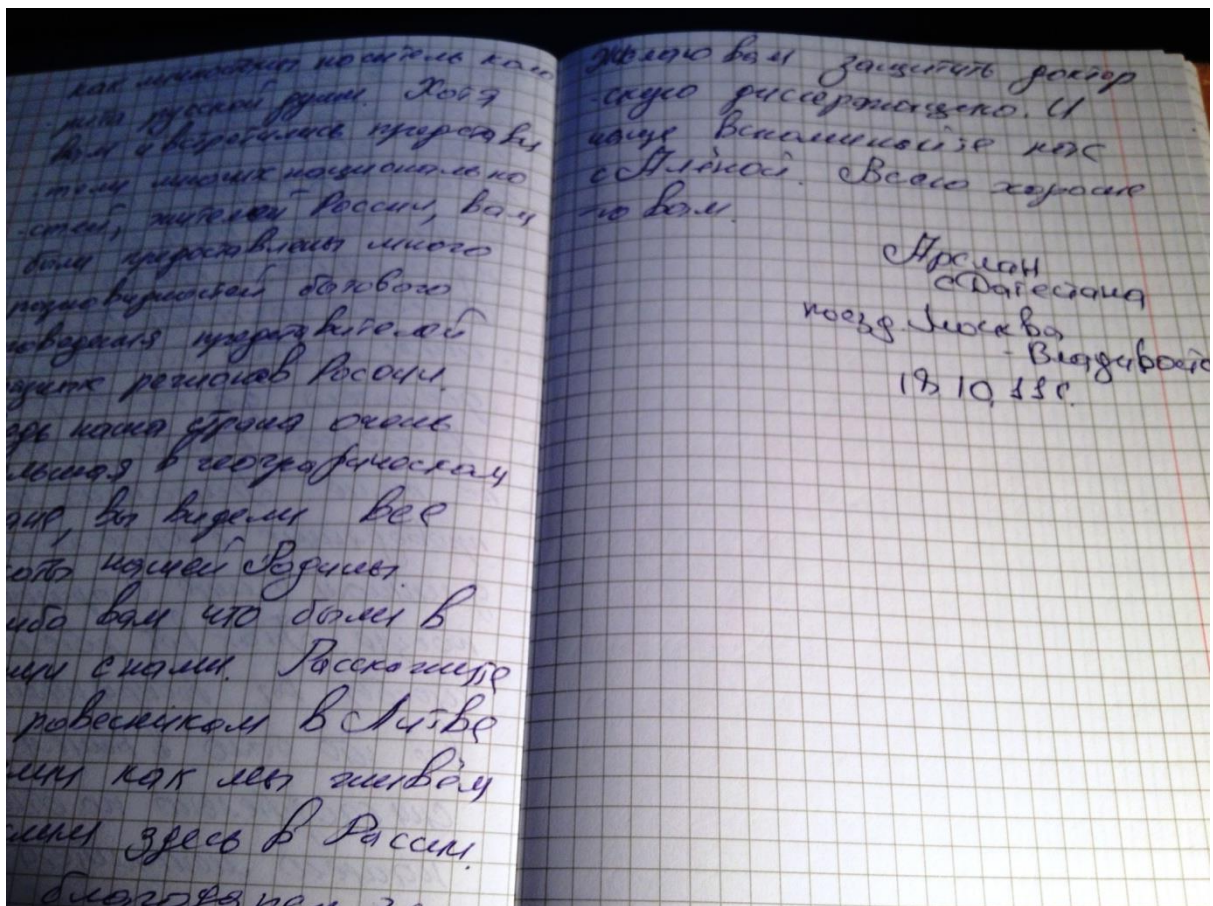 как мноночты носитель коло
-рита русской души. Хотя
вам и встретились представи
-тели многих национально
-стей, жителей России, вам
были предоставлены много
разновидностей бытового
поведения представителей
регионов России.
едь наша страна очень
льшая в географическом
ане, вы видели все
оты нашей Родины.
ибо вам что были в
с нами. Расскажите
ровесникам в Литве
как мы живём
здесь в Расии.
Желаю вам защитить доктор
-скую диссертацию. И
чаще вспоминайте нас
с Алёной. Всего хороше
-го вам.
Арслан
с Дагестана
поезд Москва
- Владивосто
18, 10, 11 г.